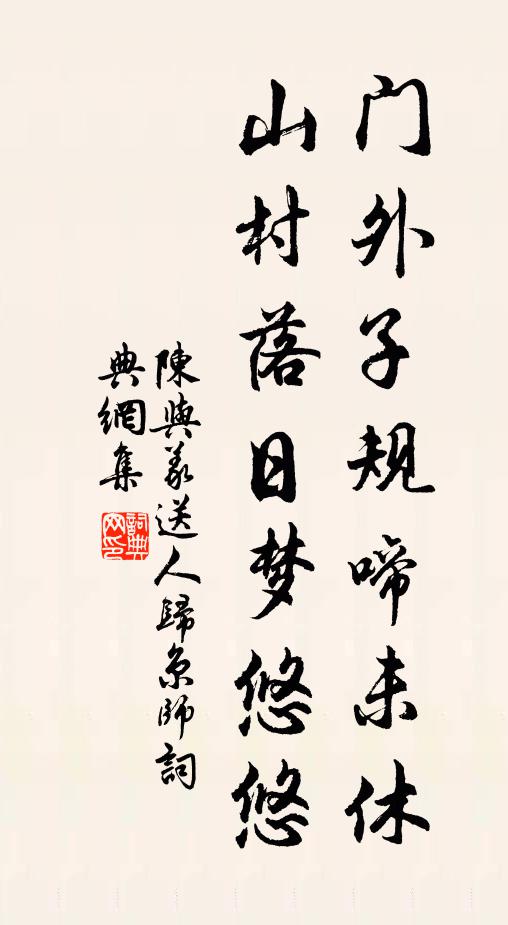 门外子规啼未休
山村落日梦悠悠
陳與義送人歸京師詞
典網集
詞典
网印